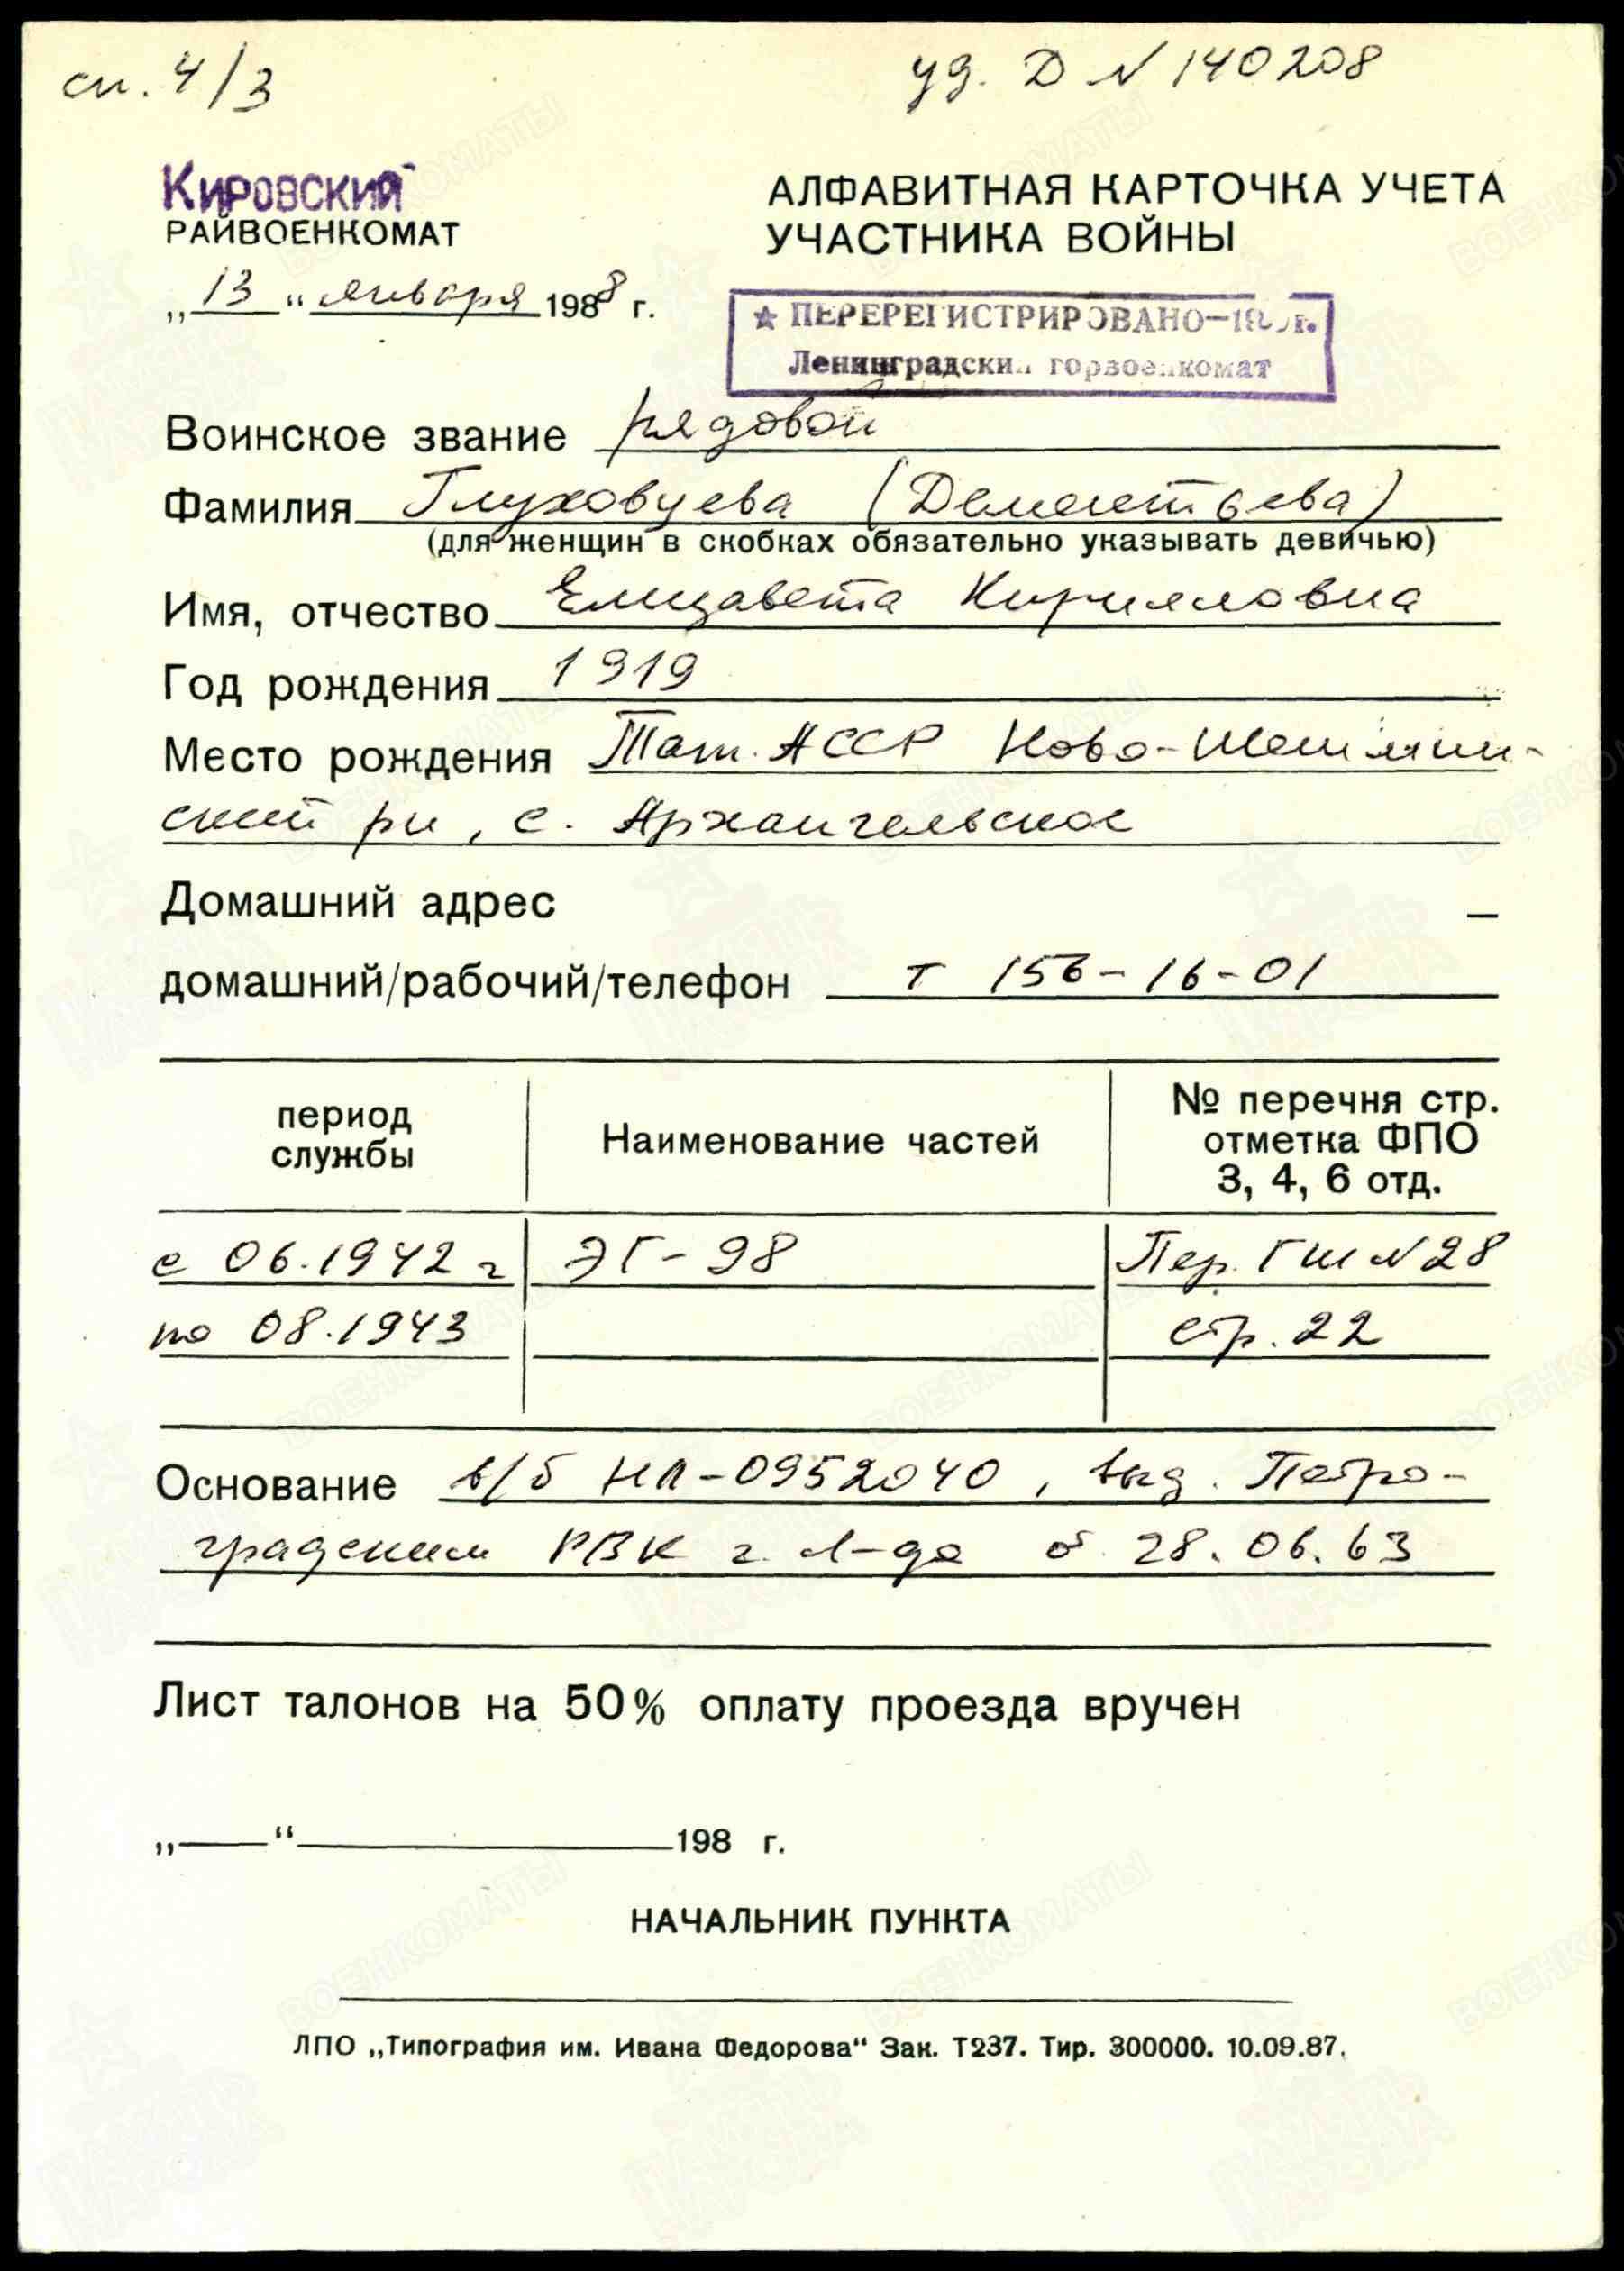 сп. 4/3
уд. Д № 140208
КИРОВСКИЙ
РАЙВОЕНКОМАТ
АЛФАВИТНАЯ КАРТОЧКА УЧЕТА
УЧАСТНИКА ВОЙНЫ
„13“ января 1988 г.
★ ПЕРЕРЕГИСТРИРОВАНО—198 г.
Ленинградский горвоенкомат
Воинское звание рядовой
Фамилия Глуховцева (Дементьева)
(для женщин в скобках обязательно указывать девичью)
Имя, отчество Елизавета Кирилловна
Год рождения 1919
Место рождения Тат. АССР Ново-Шешмин-
ский рн, с. Архангельское
Домашний адрес —
домашний/рабочий/телефон т 156-16-01
период
службы
Наименование частей
№ перечня стр.
отметка ФПО
3, 4, 6 отд.
с 06.1942 г ЭГ-98 Пер. ГШ №28
по 08.1943 стр. 22
Основание в/б НЛ-0952040, выд. Петро-
градским РВК г. Л-да от 28.06.63
Лист талонов на 50% оплату проезда вручен
„——“ 198 г.
НАЧАЛЬНИК ПУНКТА
ЛПО „Типография им. Ивана Федорова“ Зак. Т237. Тир. 300000. 10.09.87.